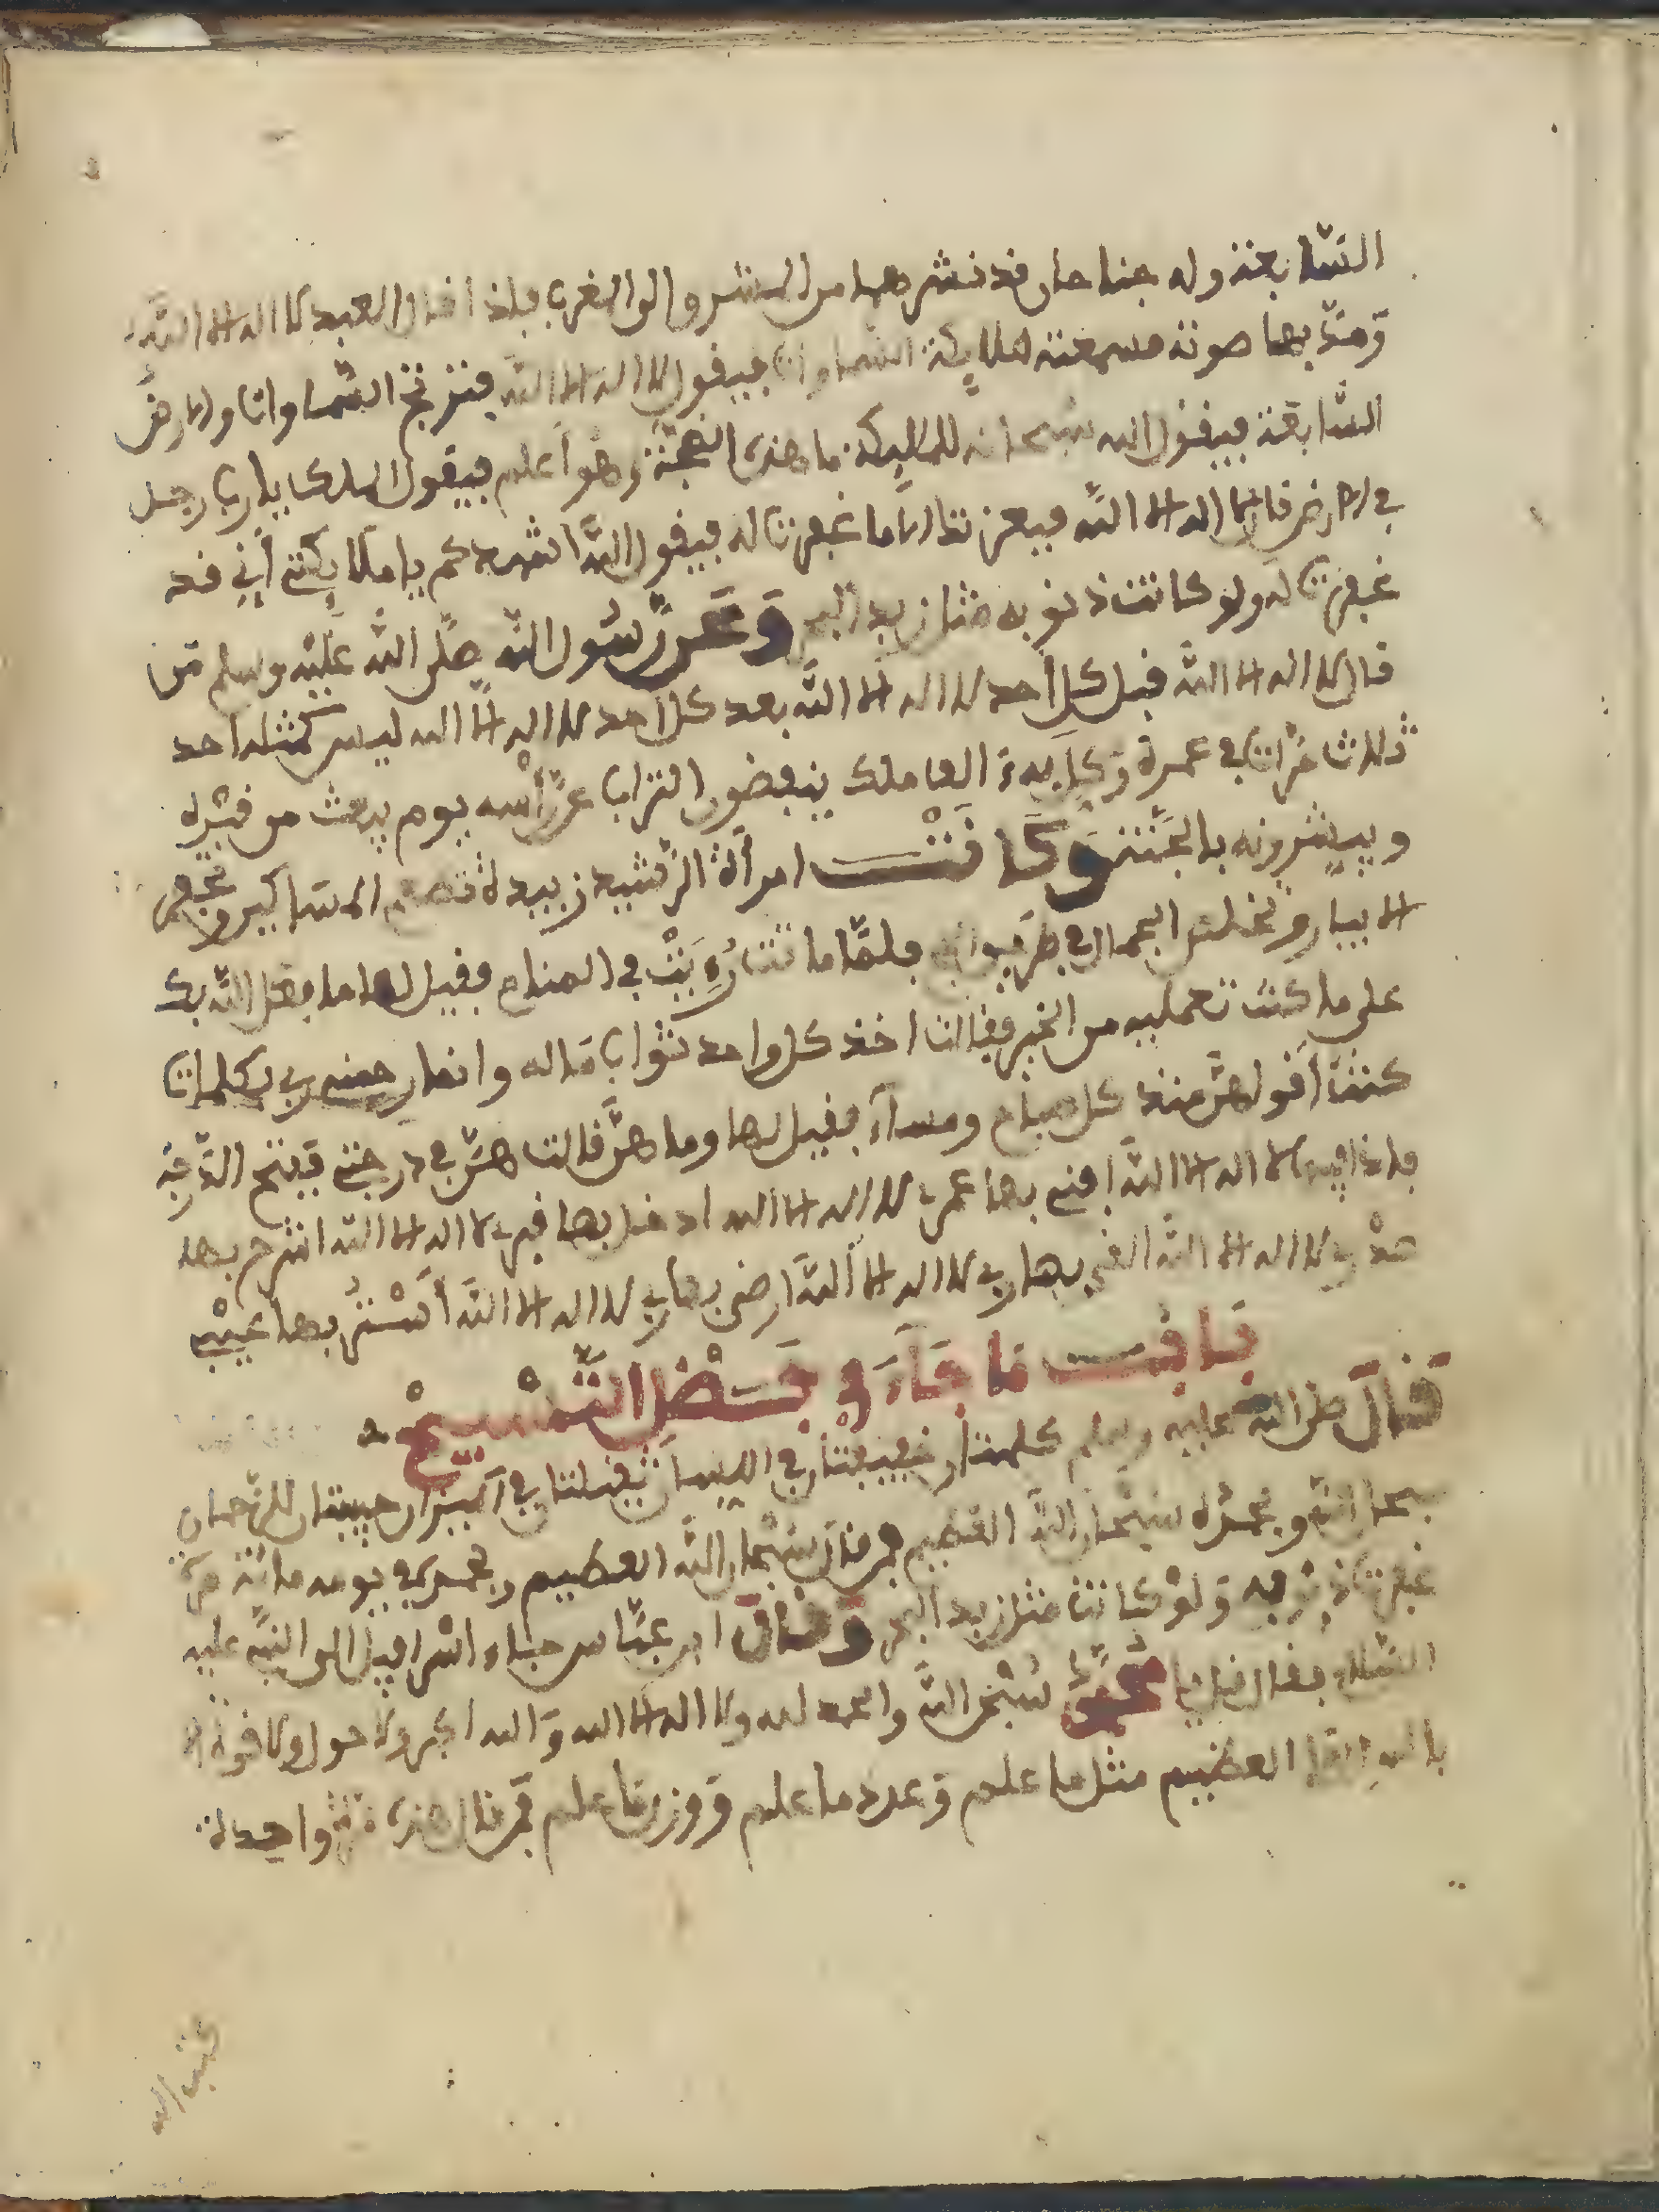 السابعة وله جناحان قد نشرهما من المشرق الى المغرب فإذا قال العبد لا اله الا الله
ومد بها صوته سمعته ملايكة السماوات فيقول لا اله الا الله فترتج السماوات والارض
السابعة فيقول الله سبحانه للملايكة ما هذه الضجة وهو أعلم فيقول الملك يارب رجل
في الارض قال لا اله الا الله فبعزتك اما غفرت له فيقول الله اشهدكم يا ملايكتي أني قد
غفرت له ولو كانت ذنوبه مثل زبد البحر وعن رسول الله صلى الله عليه وسلم من
قال لا اله الا الله قبل كل أحد لا اله الا الله بعد كل احد لا اله الا الله ليس كمثله احد
ثلاث مرات في عمره وكل به الف ملك ينفضون التراب عن رأسه يوم يبعث من قبره
ويبشرونه بالجنة وكانت امرأة الرشيد زبيدة تطعم المساكين وتحفر
الابيار في طريق فلما ماتت رءيت في المنام فقيل لها ما فعل الله بك
على ما كنت تعمليه من الخير فقالت اخذ كل واحد ثواب ماله وانما رحمني ربي بكلمات
كنت أقولهن عند كل صباح ومسآء فقيل لها وما هن قالت هن في درجتي ففتح الدرجة
فإذا فيه لا اله الا الله افني بها عمري لا اله الا الله ادخل بها قبري لا اله الا الله انشرح بها
صدري لا اله الا الله القى بها ربي لا اله الا الله ارضي بها ربي لا اله الا الله أستر بها عيبي
باب ما جآء في فضل التسبيح
قال صلى الله عليه وسلم كلمتان خفيفتان في اللسان ثقيلتان في الميزان حبيبتان للرحمان
سبحان الله وبحمده سبحان الله العظيم من قال سبحان الله العظيم وبحمده في يومه مائة مرة
غفرت ذنوبه ولو كانت مثل زبد البحر وقال ابن عباس جاء اسرافيل الى النبي عليه
السلام فقال قل يا محمد سبحن الله والحمد لله ولا اله الا الله والله اكبر ولا حول ولا قوة الا
بالله العلي العظيم مثل ما علم وعدد ما علم ووزن ما علم من قال هذه مرة واحدة